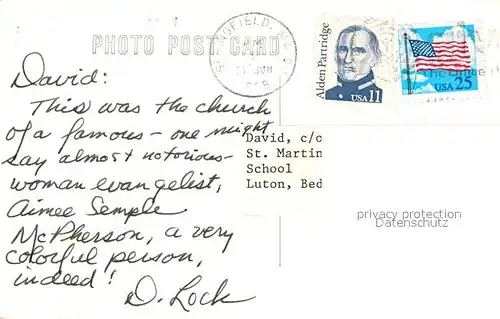 PHOTO POST CARD
Alden Partridge
USA 11
USA 25
David:
This was the church
of a famous - one might
say almost notorious -
woman evangelist,
Aimee Semple
McPherson, a very
colorful person,
indeed!
D. Lock
David, c/o
St. Martin
School
Luton, Bed
privacy protection
Datenschutz